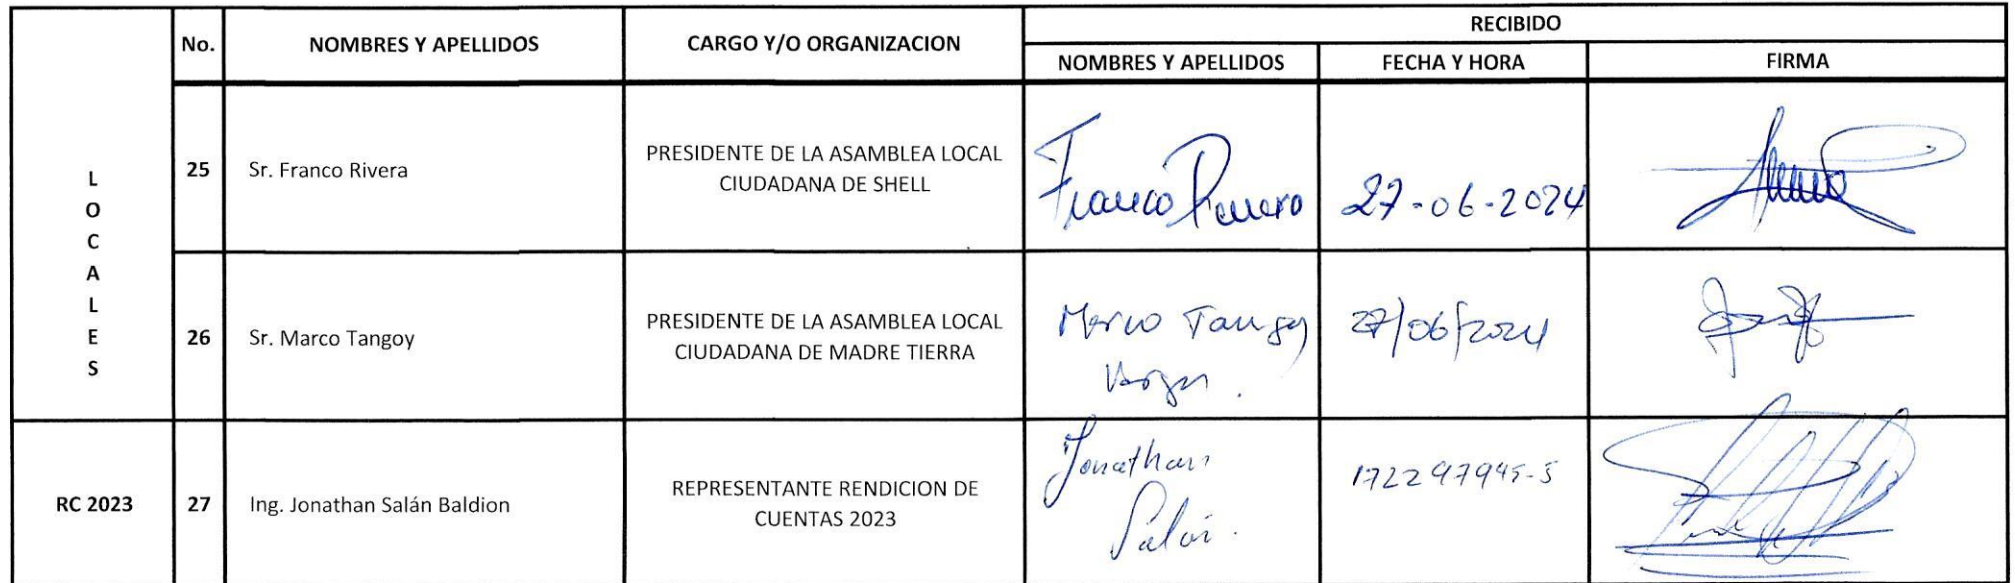 No.
NOMBRES Y APELLIDOS
CARGO Y/O ORGANIZACION
RECIBIDO
NOMBRES Y APELLIDOS
FECHA Y HORA
FIRMA
LOCALES
25
Sr. Franco Rivera
PRESIDENTE DE LA ASAMBLEA LOCAL
CIUDADANA DE SHELL
Franco
27-06-2024
26
Sr. Marco Tangoy
PRESIDENTE DE LA ASAMBLEA LOCAL
CIUDADANA DE MADRE TIERRA
Marco Tangoy
27/06/2024
RC 2023
27
Ing. Jonathan Salán Baldion
REPRESENTANTE RENDICION DE
CUENTAS 2023
Jonathan
Salán.
172297945-5